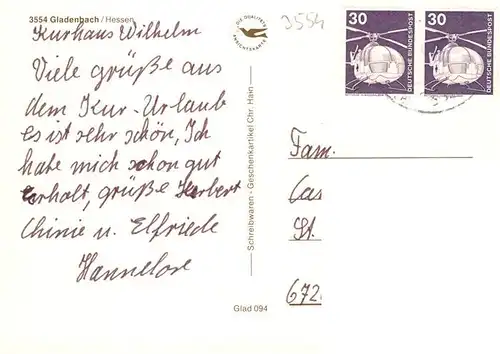 3554 Gladenbach / Hessen
Kurhaus Wilhelm
Viele grüße aus
dem Kur-Urlaub
es ist sehr schön, Ich
habe mich schon gut
erholt, grüße Herbert
u. Elfriede
Hannelore
DIE QUALITÄTS
ANSICHTSKARTE
3554
Schreibwaren - Geschenkartikel Chr. Hain
Glad 094
30
DEUTSCHE BUNDESPOST
30
DEUTSCHE BUNDESPOST
Fam.
Cas
St.
672